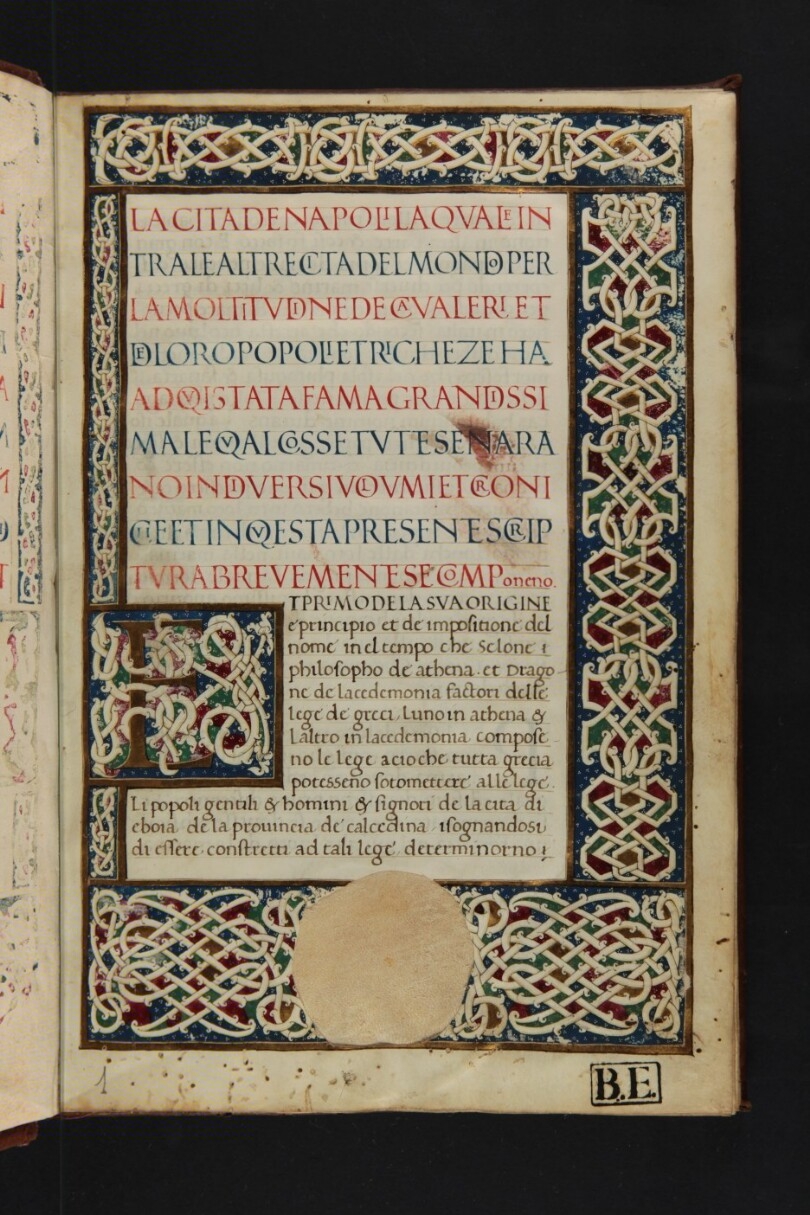 LA CITA DE NAPOLI LA QVALE IN
TRA LE ALTRE CITA DEL MONDO PER
LA MOLTITVDINE DE CAVALERI ET
DE LORO POPOLI ET RICHEZE HA
ADQVISTATA FAMA GRANDISSI
MA LE QVAL COSSE TVTE SENARA
NO IN DIVERSI VOLVMI ET CRONI
CHE ET IN QVESTA PRESENTE SCRIP
TVRA BREVEMENTE SE COMPoneno.
E
T PRIMO DE LA SVA ORIGINE
e principio et de impositione del
nome in el tempo che Selone i
philosopho de athena. et Drago
ne de lacedemonia factori delle
lege de greci. luno in athena &
laltro in lacedemonia compose
no le lege acioche tutta grecia
potesseno sotomettere alle lege.
Li popoli gentili & homini & signori de la cita di
eboia de la prouincia de calcedina isognandosi
di essere constretti ad tali lege determinorno i
1
B.E.